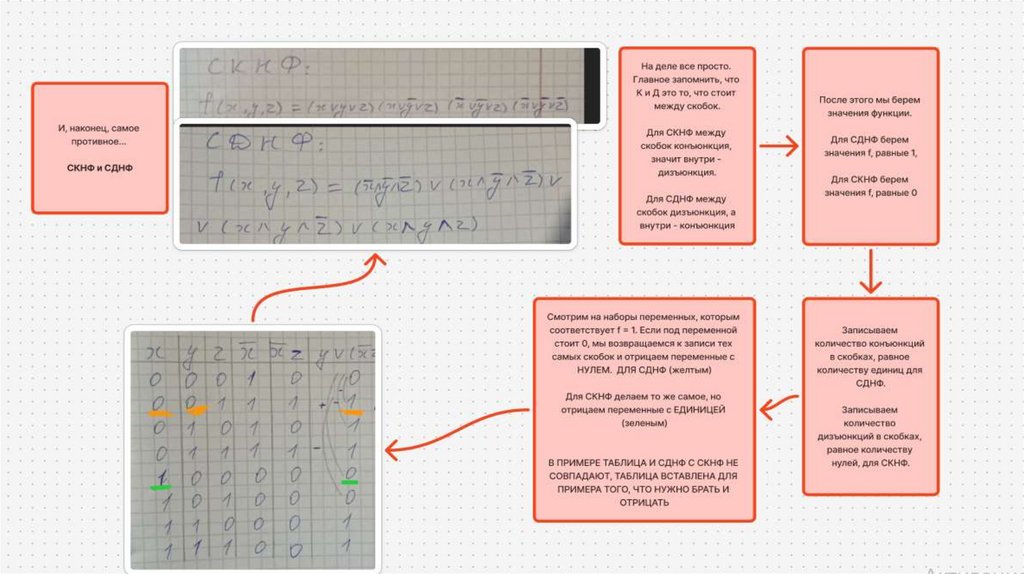 И, наконец, самое
противное...
СКНФ и СДНФ
СКНФ:
f(x,y,z) = (x∨y∨z) (x∨y̅∨z) (x̅∨y̅∨z) (x̅∨y̅∨z̅)
СДНФ:
f(x,y,z) = (x̅∧y̅∧z̅) ∨ (x∧y̅∧z̅) ∨
∨ (x∧y∧z̅) ∨ (x∧y∧z)
На деле все просто.
Главное запомнить, что
К и Д это то, что стоит
между скобок.
Для СКНФ между
скобок конъюнкция,
значит внутри -
дизъюнкция.
Для СДНФ между
скобок дизъюнкция, а
внутри - конъюнкция
После этого мы берем
значения функции.
Для СДНФ берем
значения f, равные 1,
Для СКНФ берем
значения f, равные 0
Записываем
количество конъюнкций
в скобках, равное
количеству единиц для
СДНФ.
Записываем
количество
дизъюнкций в скобках,
равное количеству
нулей, для СКНФ.
Смотрим на наборы переменных, которым
соответствует f = 1. Если под переменной
стоит 0, мы возвращаемся к записи тех
самых скобок и отрицаем переменные с
НУЛЕМ. ДЛЯ СДНФ (желтым)
Для СКНФ делаем то же самое, но
отрицаем переменные с ЕДИНИЦЕЙ
(зеленым)
В ПРИМЕРЕ ТАБЛИЦА И СДНФ С СКНФ НЕ
СОВПАДАЮТ, ТАБЛИЦА ВСТАВЛЕНА ДЛЯ
ПРИМЕРА ТОГО, ЧТО НУЖНО БРАТЬ И
ОТРИЦАТЬ
x y z x̅ x̅ z y∨(x̅z
0 0 0 1 0 0
0 0 1 1 1 + - 1
0 1 0 1 0 1
0 1 1 1 1 - 1
1 0 0 0 0 0
1 0 1 0 0 0
1 1 0 0 0 1
1 1 1 0 0 1